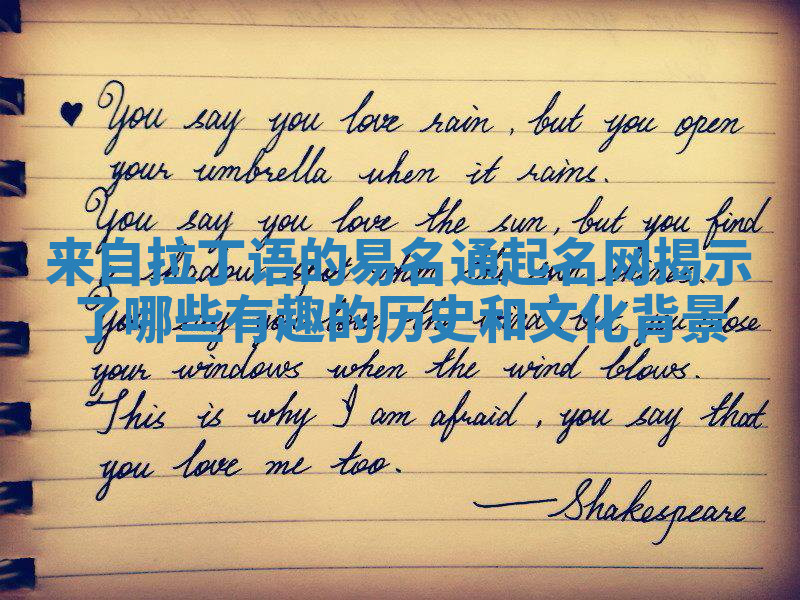 ♥ You say you love rain, but you open
your umbrella when it rains.
You say you love the sun, but you find
来自拉丁语的易名通起名网揭示
a shadow spot when the sun shines.
了哪些有趣的历史和文化背景
You say you love the wind, but you close
your windows when the wind blows.
This is why I am afraid, you say that
you love me too.
—Shakespeare